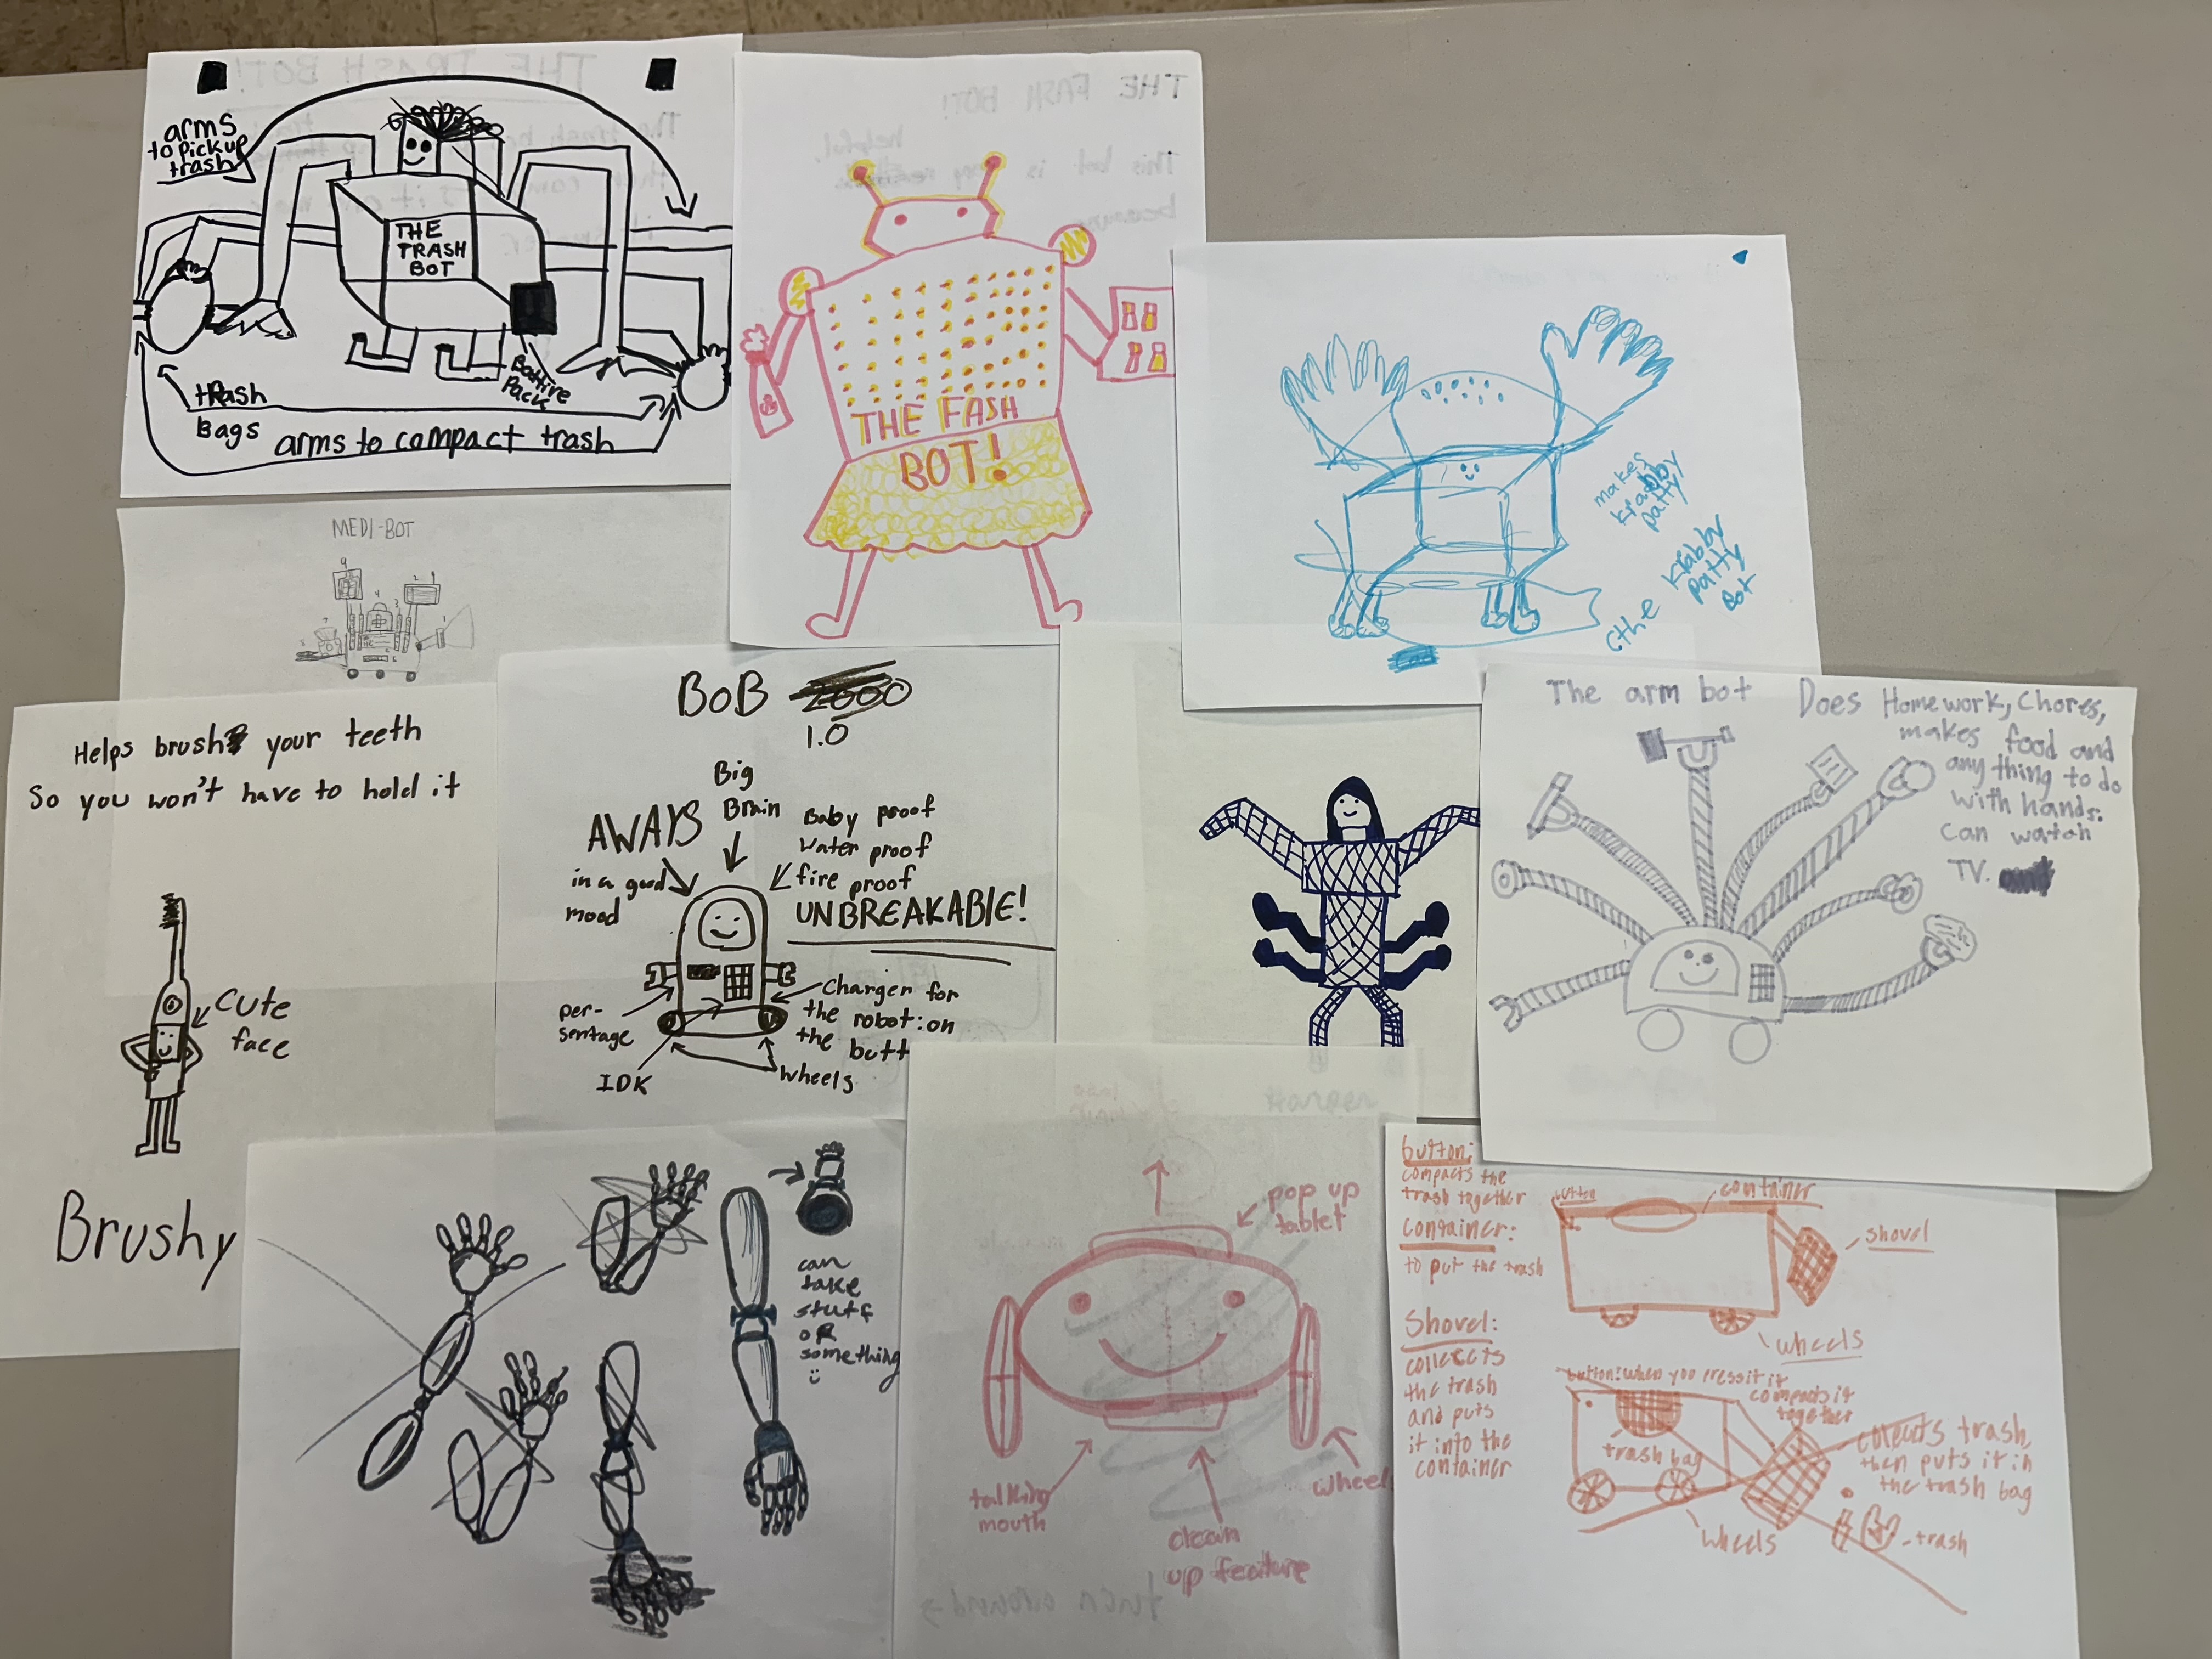 arms
to pick up
trash
THE
TRASH
BOT
Battire
Pack
trash
Bags
arms to compact trash
THE FASH
BOT!
makes
krabby
patty!
the krabby
patty
Bot
MEDI-BOT
Helps brush your teeth
So you won't have to hold it
Cute
face
Brushy
BoB 2000
1.0
Big
Brain
AWAYS
in a good
mood
Baby proof
Water proof
fire proof
UNBREAKABLE!
per-
sentage
IDK
Charger for
the robot: on
the butt
Wheels
The arm bot
Does Homework, Chores,
makes food and
any thing to do
with hands.
can watch
TV.
can
take
stuff
OR
something
pop up
tablet
talking
mouth
clean
up feature
wheel
Harper
turn around
button:
compacts the
trash together
container:
to put the trash
Shovel:
collects
the trash
and puts
it into the
container
button
container
shovel
wheels
button: when you press it it
compacts it
together
trash bag
collects trash,
then puts it in
the trash bag
wheels
trash
THE TRASH BOT!
THE FASH BOT!
This bot is very helpful.
because